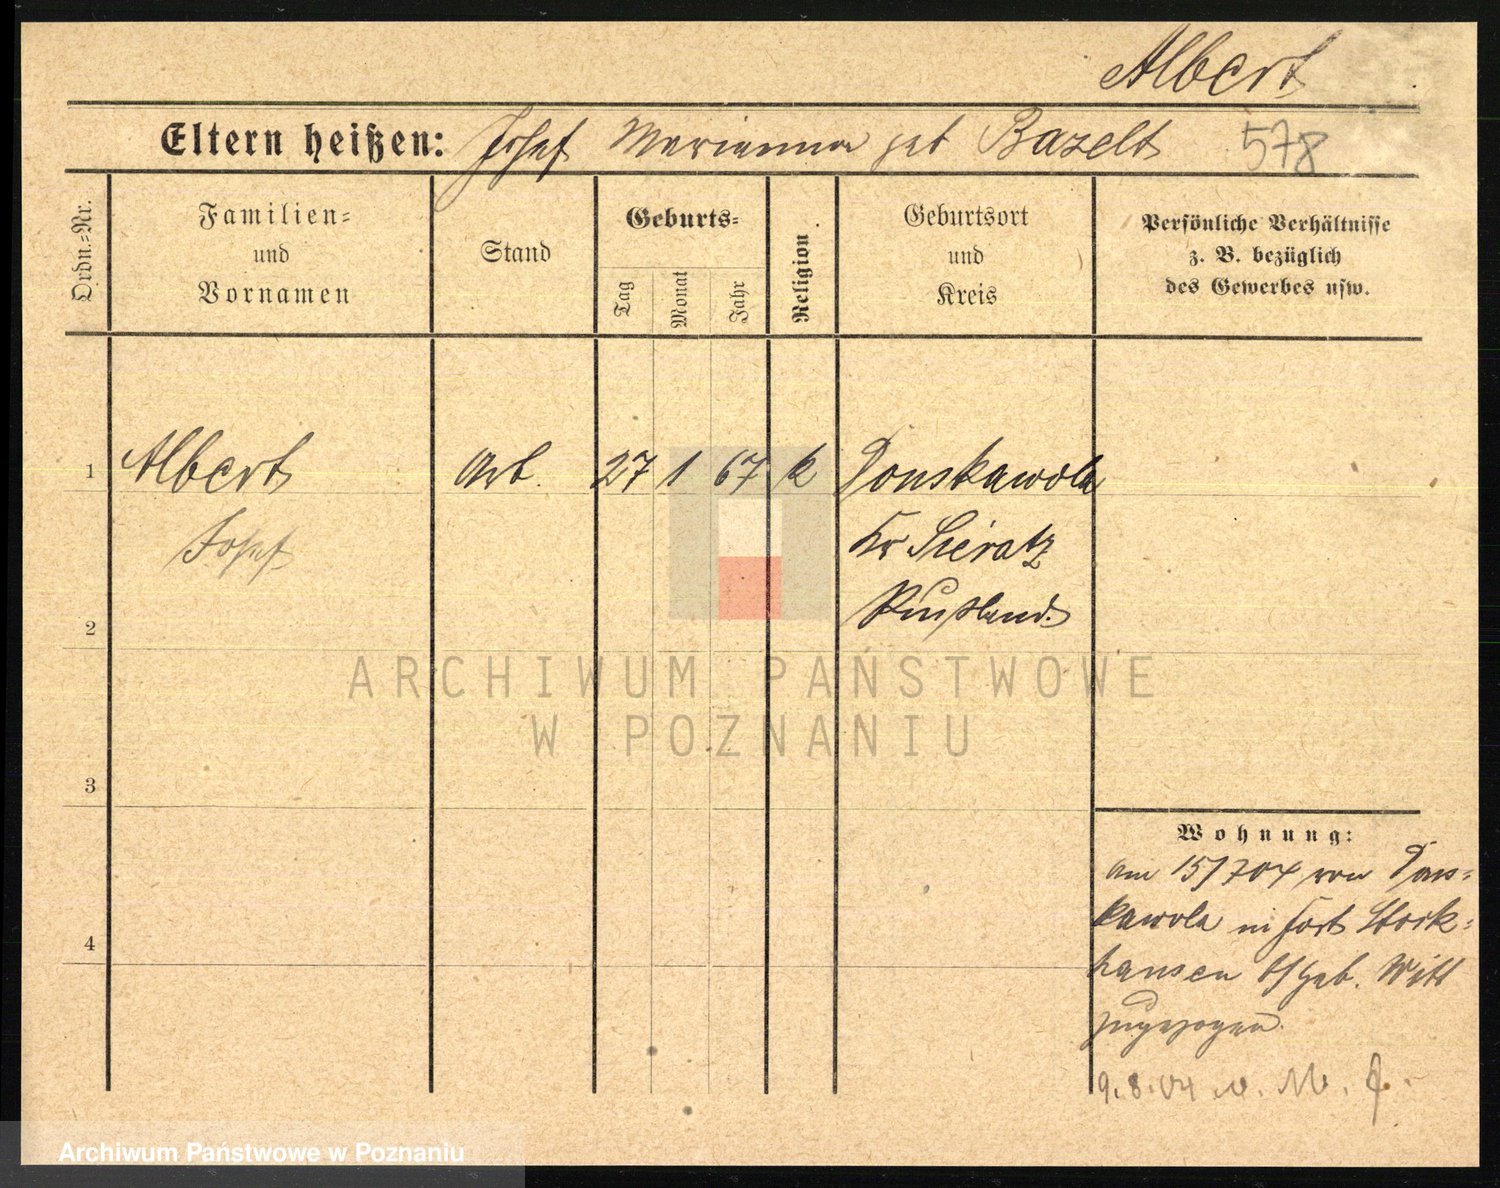 Albert
Eltern heißen: Josef Marianna geb Bazelt 578
Ordn.=Nr.
Familien=
und
Vornamen
Stand
Geburts=
Tag
Monat
Jahr
Religion
Geburtsort
und
Kreis
Persönliche Verhältnisse
z. B. bezüglich
des Gewerbes usw.
1 Albert Arb. 27 1 67 k Donskawola
Josef Kr Sieratz
Rußland.
2
3
4
ARCHIWUM PAŃSTWOWE
W POZNANIU
Wohnung:
am 15/7 04 von Dons=
kawola in Fort Stock=
hausen b/ Witt
zugezogen.
9.8.04 n.
Archiwum Państwowe w Poznaniu